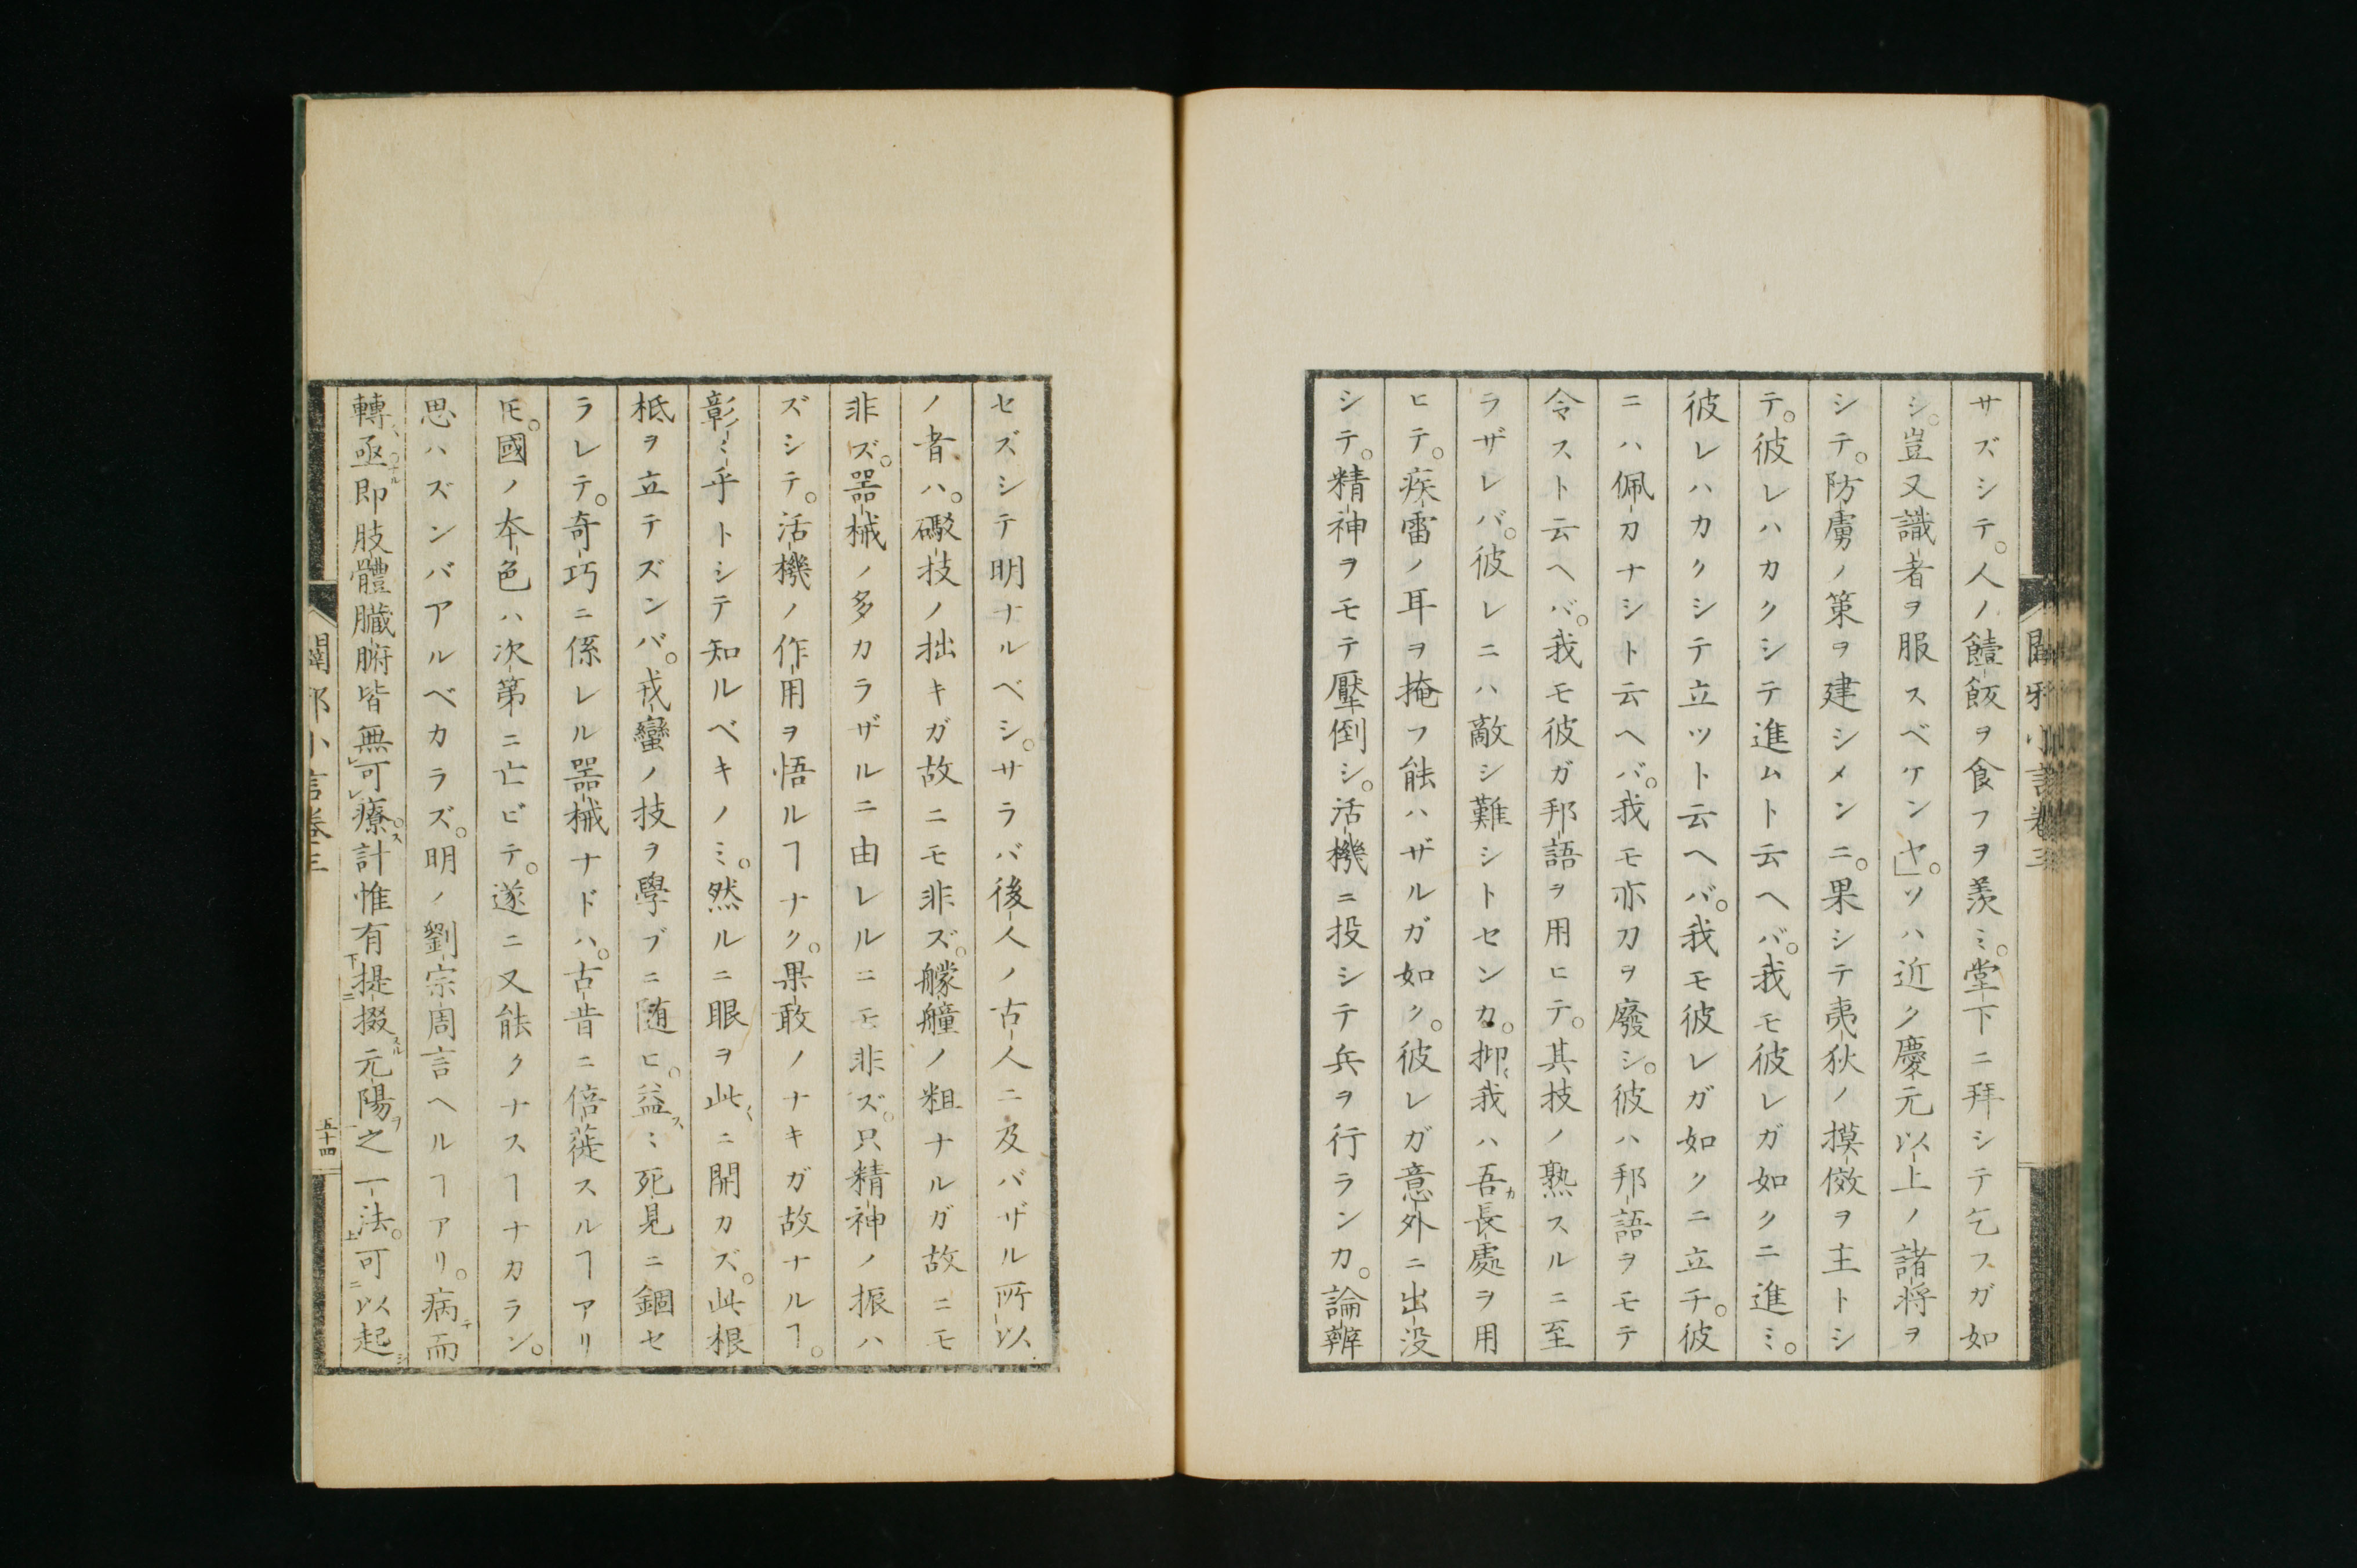 サズシテ。人ノ饐飯ヲ食フヲ羨ミ。堂下ニ拜シテ乞フガ如
シ。豈又識者ヲ服スベケンヤ」。ソハ近ク慶元以上ノ諸将ヲ
シテ。防虜ノ策ヲ建シメンニ。果シテ夷狄ノ摸倣ヲ主トシ
テ。彼レハカクシテ進ムト云ヘバ。我モ彼レガ如クニ進ミ。
彼レハカクシテ立ツト云ヘバ。我モ彼レガ如クニ立チ。彼
ニハ佩刀ナシト云ヘバ。我モ亦刀ヲ廢シ。彼ハ邦語ヲモテ
令スト云ヘバ。我モ彼ガ邦語ヲ用ヒテ。其技ノ熟スルニ至
ラザレバ。彼レニハ敵シ難シトセンカ。抑〻我ハ吾ガ長處ヲ用
ヒテ。疾雷ノ耳ヲ掩フ能ハザルガ如ク。彼レガ意外ニ出没
シテ。精神ヲモテ壓倒シ。活機ニ投シテ兵ヲ行ランカ。論辨
セズシテ明ナルベシ。サラバ後人ノ古人ニ及バザル所以
ノ者ハ。礮技ノ拙キガ故ニモ非ズ。艨艟ノ粗ナルガ故ニモ
非ズ。器械ノ多カラザルニ由レルニモ非ズ。只精神ノ振ハ
ズシテ。活機ノ作用ヲ悟ルヿナク。果敢ノナキガ故ナルヿ。
彰〻乎トシテ知ルベキノミ。然ルニ眼ヲ此ニ開カズ。此根
柢ヲ立テズンバ。戎蠻ノ技ヲ學ブニ随ヒ。益〻死見ニ錮セ
ラレテ。奇巧ニ係レル器械ナドハ。古昔ニ倍蓰スルヿアリ
𪜈。國ノ本色ハ次第ニ亡ビテ。遂ニ又能クナスヿナカラン。
思ハズンバアルベカラズ。明ノ劉宗周言ヘルヿアリ。病テ而
轉〻亟ナル。即肢體臟腑皆無レ可レ療ス。計惟有下提二掇スル元陽ヲ一之一法。上可二以起シ
闢邪小言卷三
五十四